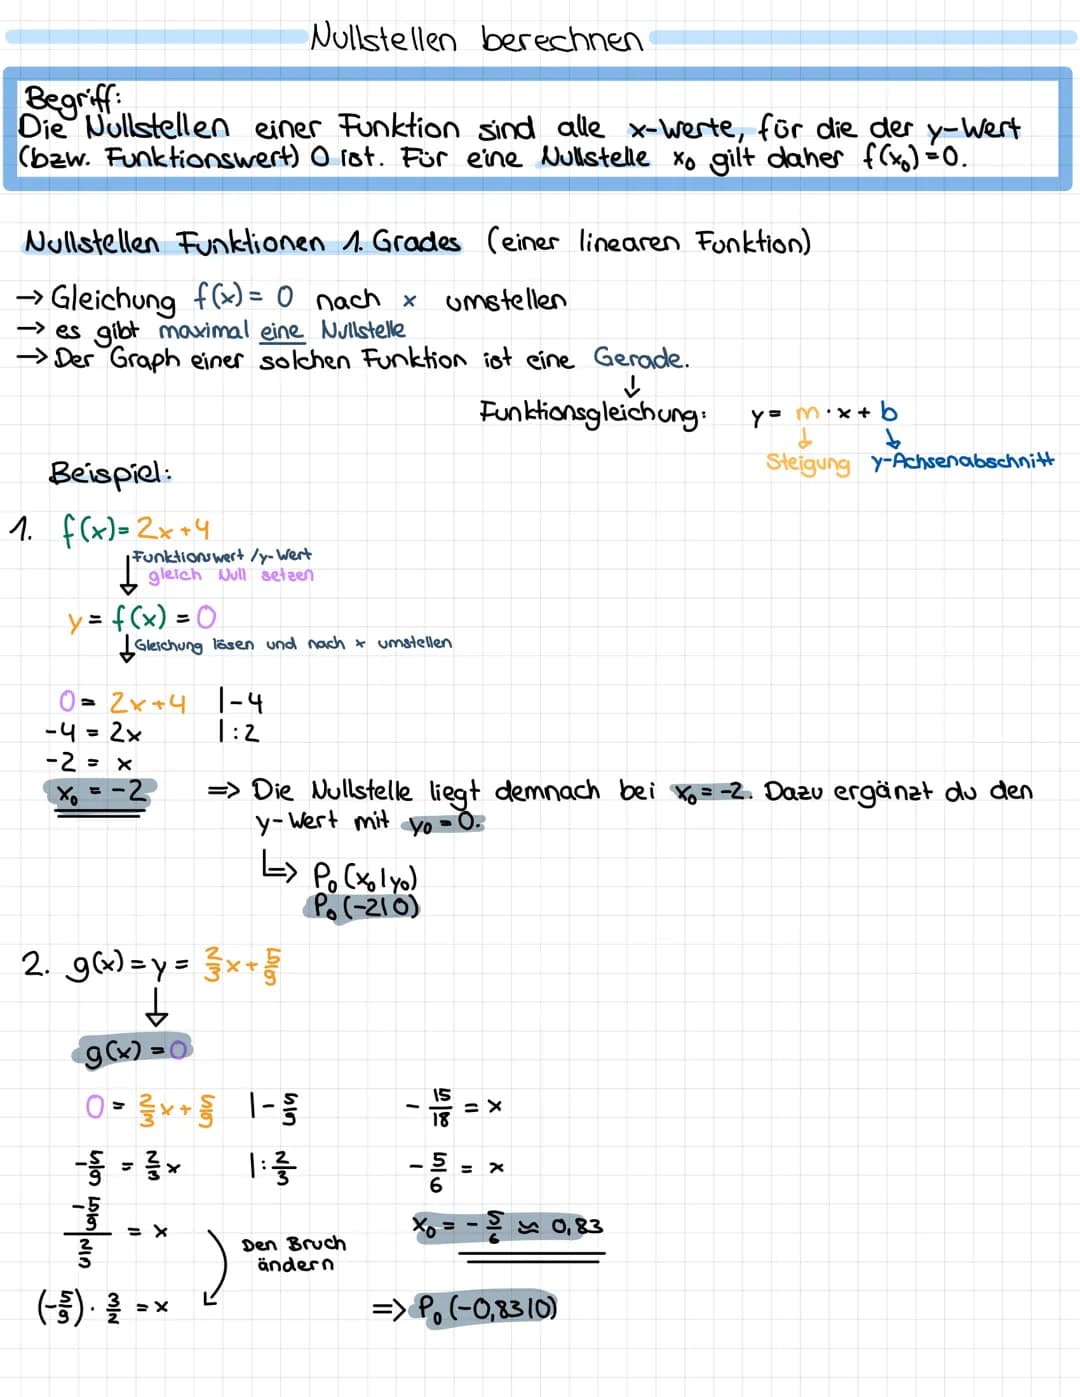 Nullstellen berechnen
Begriff:
Die Nullstellen einer Funktion sind alle x-Werte, für die der y-Wert
(bzw. Funktionswert) 0 ist. Für eine Nullstelle x₀ gilt daher f(x₀)=0.
Nullstellen Funktionen 1. Grades (einer linearen Funktion)
→ Gleichung f(x) = 0 nach x umstellen
→ es gibt maximal eine Nullstelle
→ Der Graph einer solchen Funktion ist eine Gerade.
↓
Funktionsgleichung: y = m·x + b
↓ ↓
Steigung y-Achsenabschnitt
Beispiel:
1. f(x)= 2x+4
↓ Funktionswert /y-Wert
gleich Null setzen
y = f(x) = 0
↓ Gleichung lösen und nach x umstellen
0 = 2x+4 |-4
-4 = 2x |:2
-2 = x
x₀ = -2 => Die Nullstelle liegt demnach bei x₀ = -2. Dazu ergänzt du den
y-Wert mit y₀ = 0.
↳> P₀ (x₀|y₀)
P₀ (-2|0)
2. g(x) = y = 2/3 x + 5/9
↓
g(x) = 0
0 = 2/3 x + 5/9 |- 5/9
-5/9 = 2/3 x |: 2/3
(-5/9)/(2/3) = x
Den Bruch
ändern
(-5/9) · 3/2 = x
- 15/18 = x
- 5/6 = x
x₀ = - 5/6 ≈ 0,83
=> P₀ (-0,83|0)